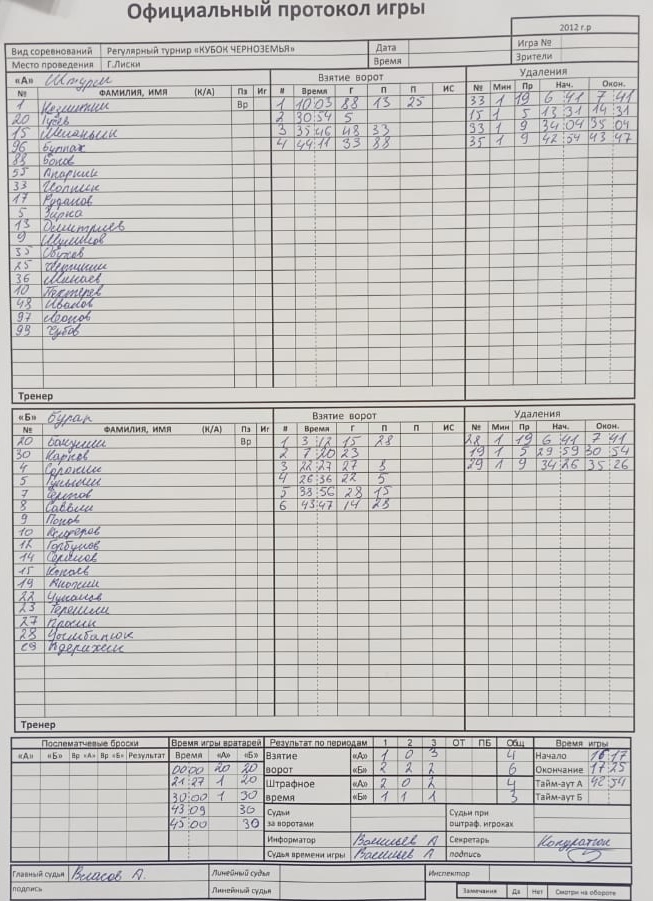 Официальный протокол игры
2012 г.р
Вид соревнований Регулярный турнир «КУБОК ЧЕРНОЗЕМЬЯ» Дата Игра №
Место проведения Г.Лиски Время Зрители
«А» Штурм Взятие ворот Удаления
№ ФАМИЛИЯ, ИМЯ (К/А) Пз Иг # Время Г П П ИС № Мин Пр Нач. Окон.
1 Вр 1 10 03 88 13 25 33 1 19 6 41 7 41
20 Гусев 2 30 54 5 15 1 5 13 31 14 31
15 3 35 46 48 33 93 1 9 34 04 35 04
96 4 44 11 33 88 35 1 9 42 54 43 47
88
55
33
17 Рудаков
5 Зирка
13 Дмитриев
9
35 Обухов
25
36 Минаев
10 Пехтерев
48 Иванов
97 Леонов
99 Чубов
Тренер
«Б» Буран Взятие ворот Удаления
№ ФАМИЛИЯ, ИМЯ (К/А) Пз Иг # Время Г П П ИС № Мин Пр Нач. Окон.
20 Вр 1 3 12 15 28 28 1 19 6 41 7 41
30 Карпов 2 7 20 23 19 1 5 29 59 30 54
4 Сорокин 3 22 27 27 8 29 1 9 34 26 35 26
5 4 26 36 22 5
7 5 38 56 28 15
8 Саввин 6 43 47 14 23
9 Попов
10
12 Горбунов
14
15 Копаев
19
22 Чумаков
23
27 Пронин
28
Тренер
Послематчевые броски Время игры вратарей Результат по периодам 1 2 3 ОТ ПБ Общ Время игры
«А» «Б» Вр «А» Вр «Б» Результат Время «А» «Б» Взятие «А» 1 0 3 4 Начало 16 17
00 00 20 20 ворот «Б» 2 2 2 6 Окончание 17 25
21 27 1 20 Штрафное «А» 2 0 2 4 Тайм-аут А 42 54
30 00 1 30 время «Б» 1 1 1 3 Тайм-аут Б
43 09 30 Судьи Судьи при
45 00 30 за воротами оштраф. игроках
Информатор Васильев А Секретарь
Судья времени игры Васильев А подпись
Главный судья Власов А. Линейный судья Инспектор
подпись Линейный судья Замечания Да Нет Смотри на обороте